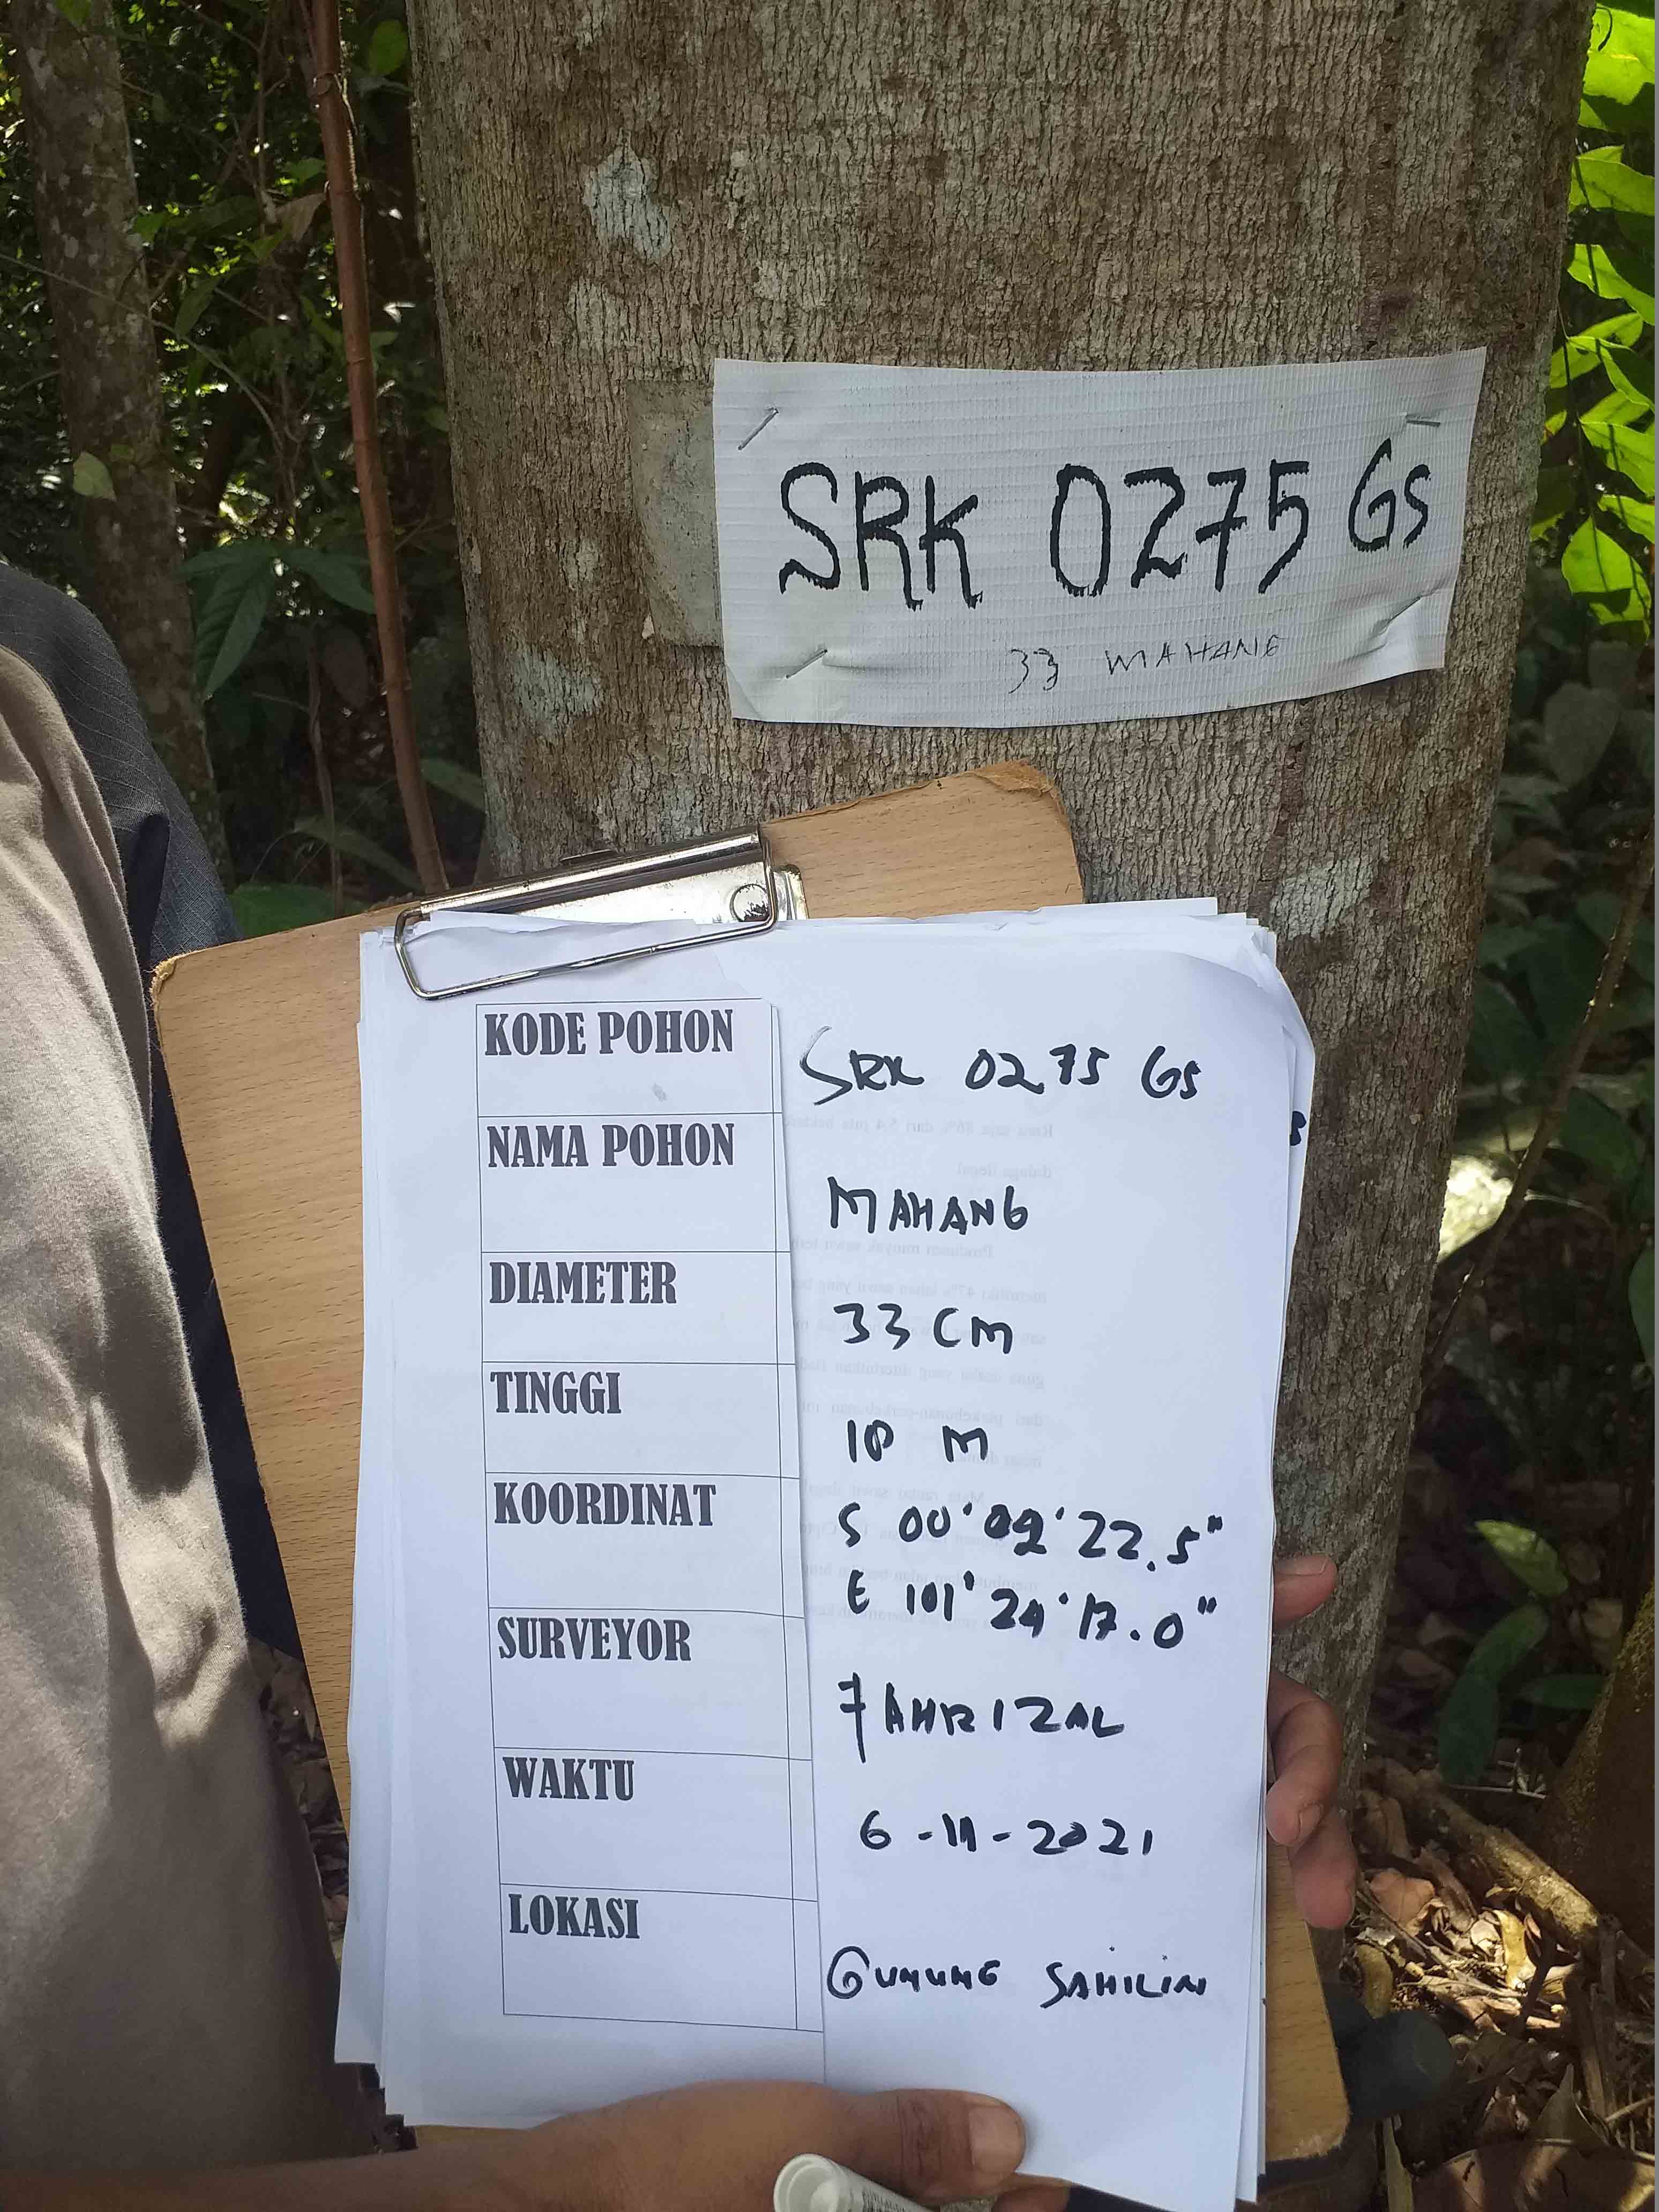 SRK 0275 GS
33 MAHANG
KODE POHON
SRK 0275 GS
NAMA POHON
MAHANG
DIAMETER
33 CM
TINGGI
10 M
KOORDINAT
S 00' 02' 22.5"
E 101' 24' 17.0"
SURVEYOR
FAHRIZAL
WAKTU
6-11-2021
LOKASI
GUNUNG SAHILIN